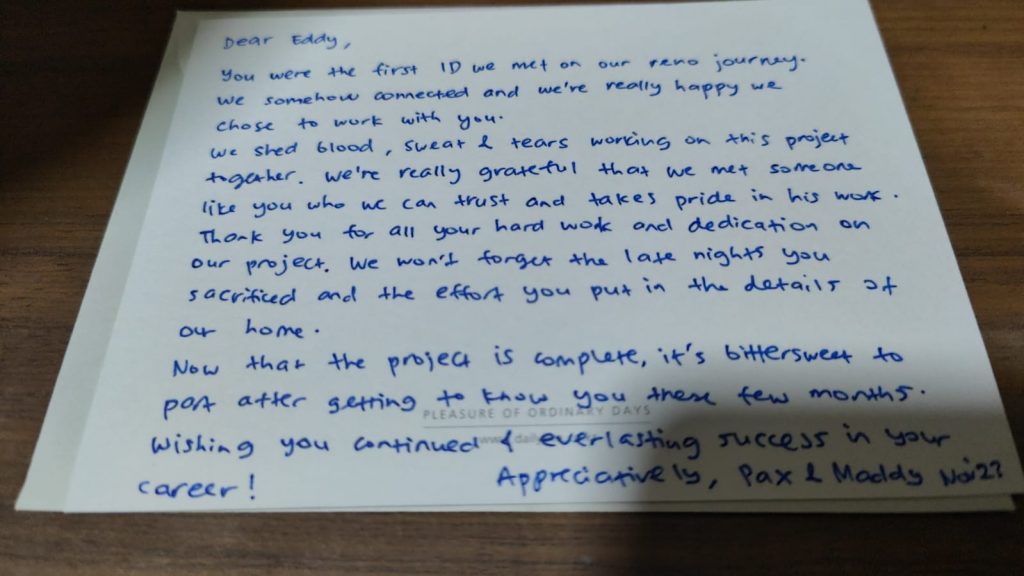 Dear Eddy,
You were the first ID we met on our reno journey.
We somehow connected and we're really happy we
chose to work with you.
We shed blood, sweat & tears working on this project
together. We're really grateful that we met someone
like you who we can trust and takes pride in his work.
Thank you for all your hard work and dedication on
our project. We won't forget the late nights you
sacrificed and the effort you put in the details of
our home.
Now that the project is complete, it's bittersweet to
part after getting to know you these few months.
PLEASURE OF ORDINARY DAYS
Wishing you continued & everlasting success in your
career! Appreciatively, Pax & Maddy